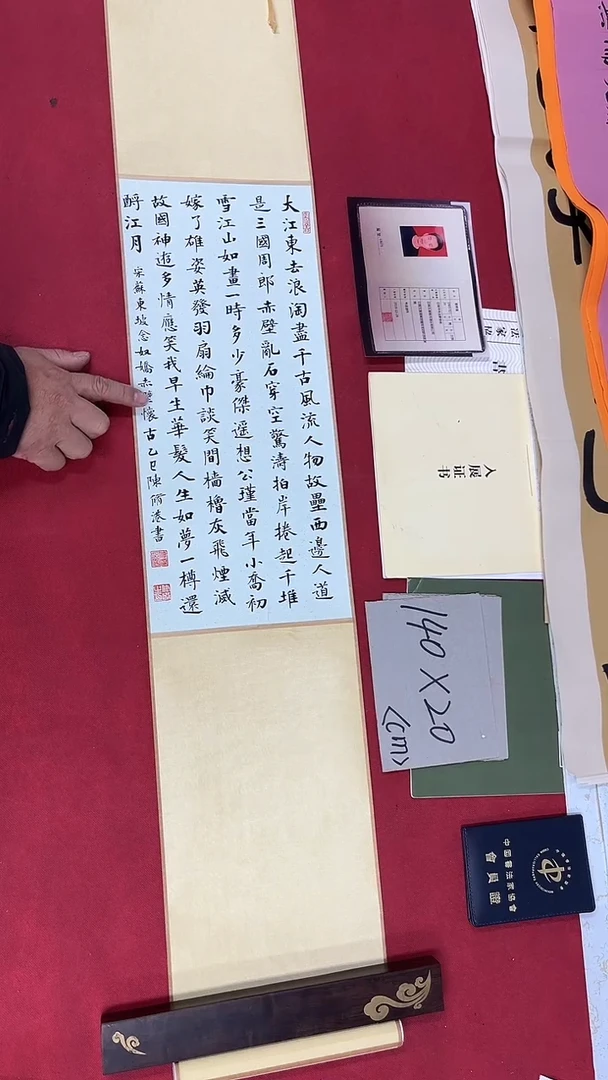 大江東去浪淘盡千古風流人物故壘西邊人道
是三國周郎赤壁亂石穿空驚濤拍岸捲起千堆
雪江山如畫一時多少豪傑遥想公瑾當年小喬初
嫁了雄姿英發羽扇綸巾談笑間檣櫓灰飛煙滅
故國神遊多情應笑我早生華髮人生如夢一樽還
酹江月 宋蘇東坡念奴嬌赤壁懷古乙巳陳脩港書
入展证书
140X20
(cm)
中國書法家協會
會員證